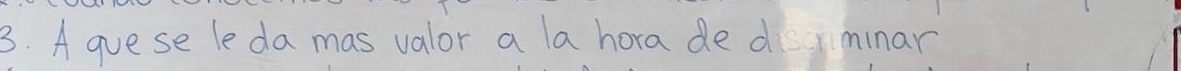 3. A que se le da mas valor a la hora de discriminar